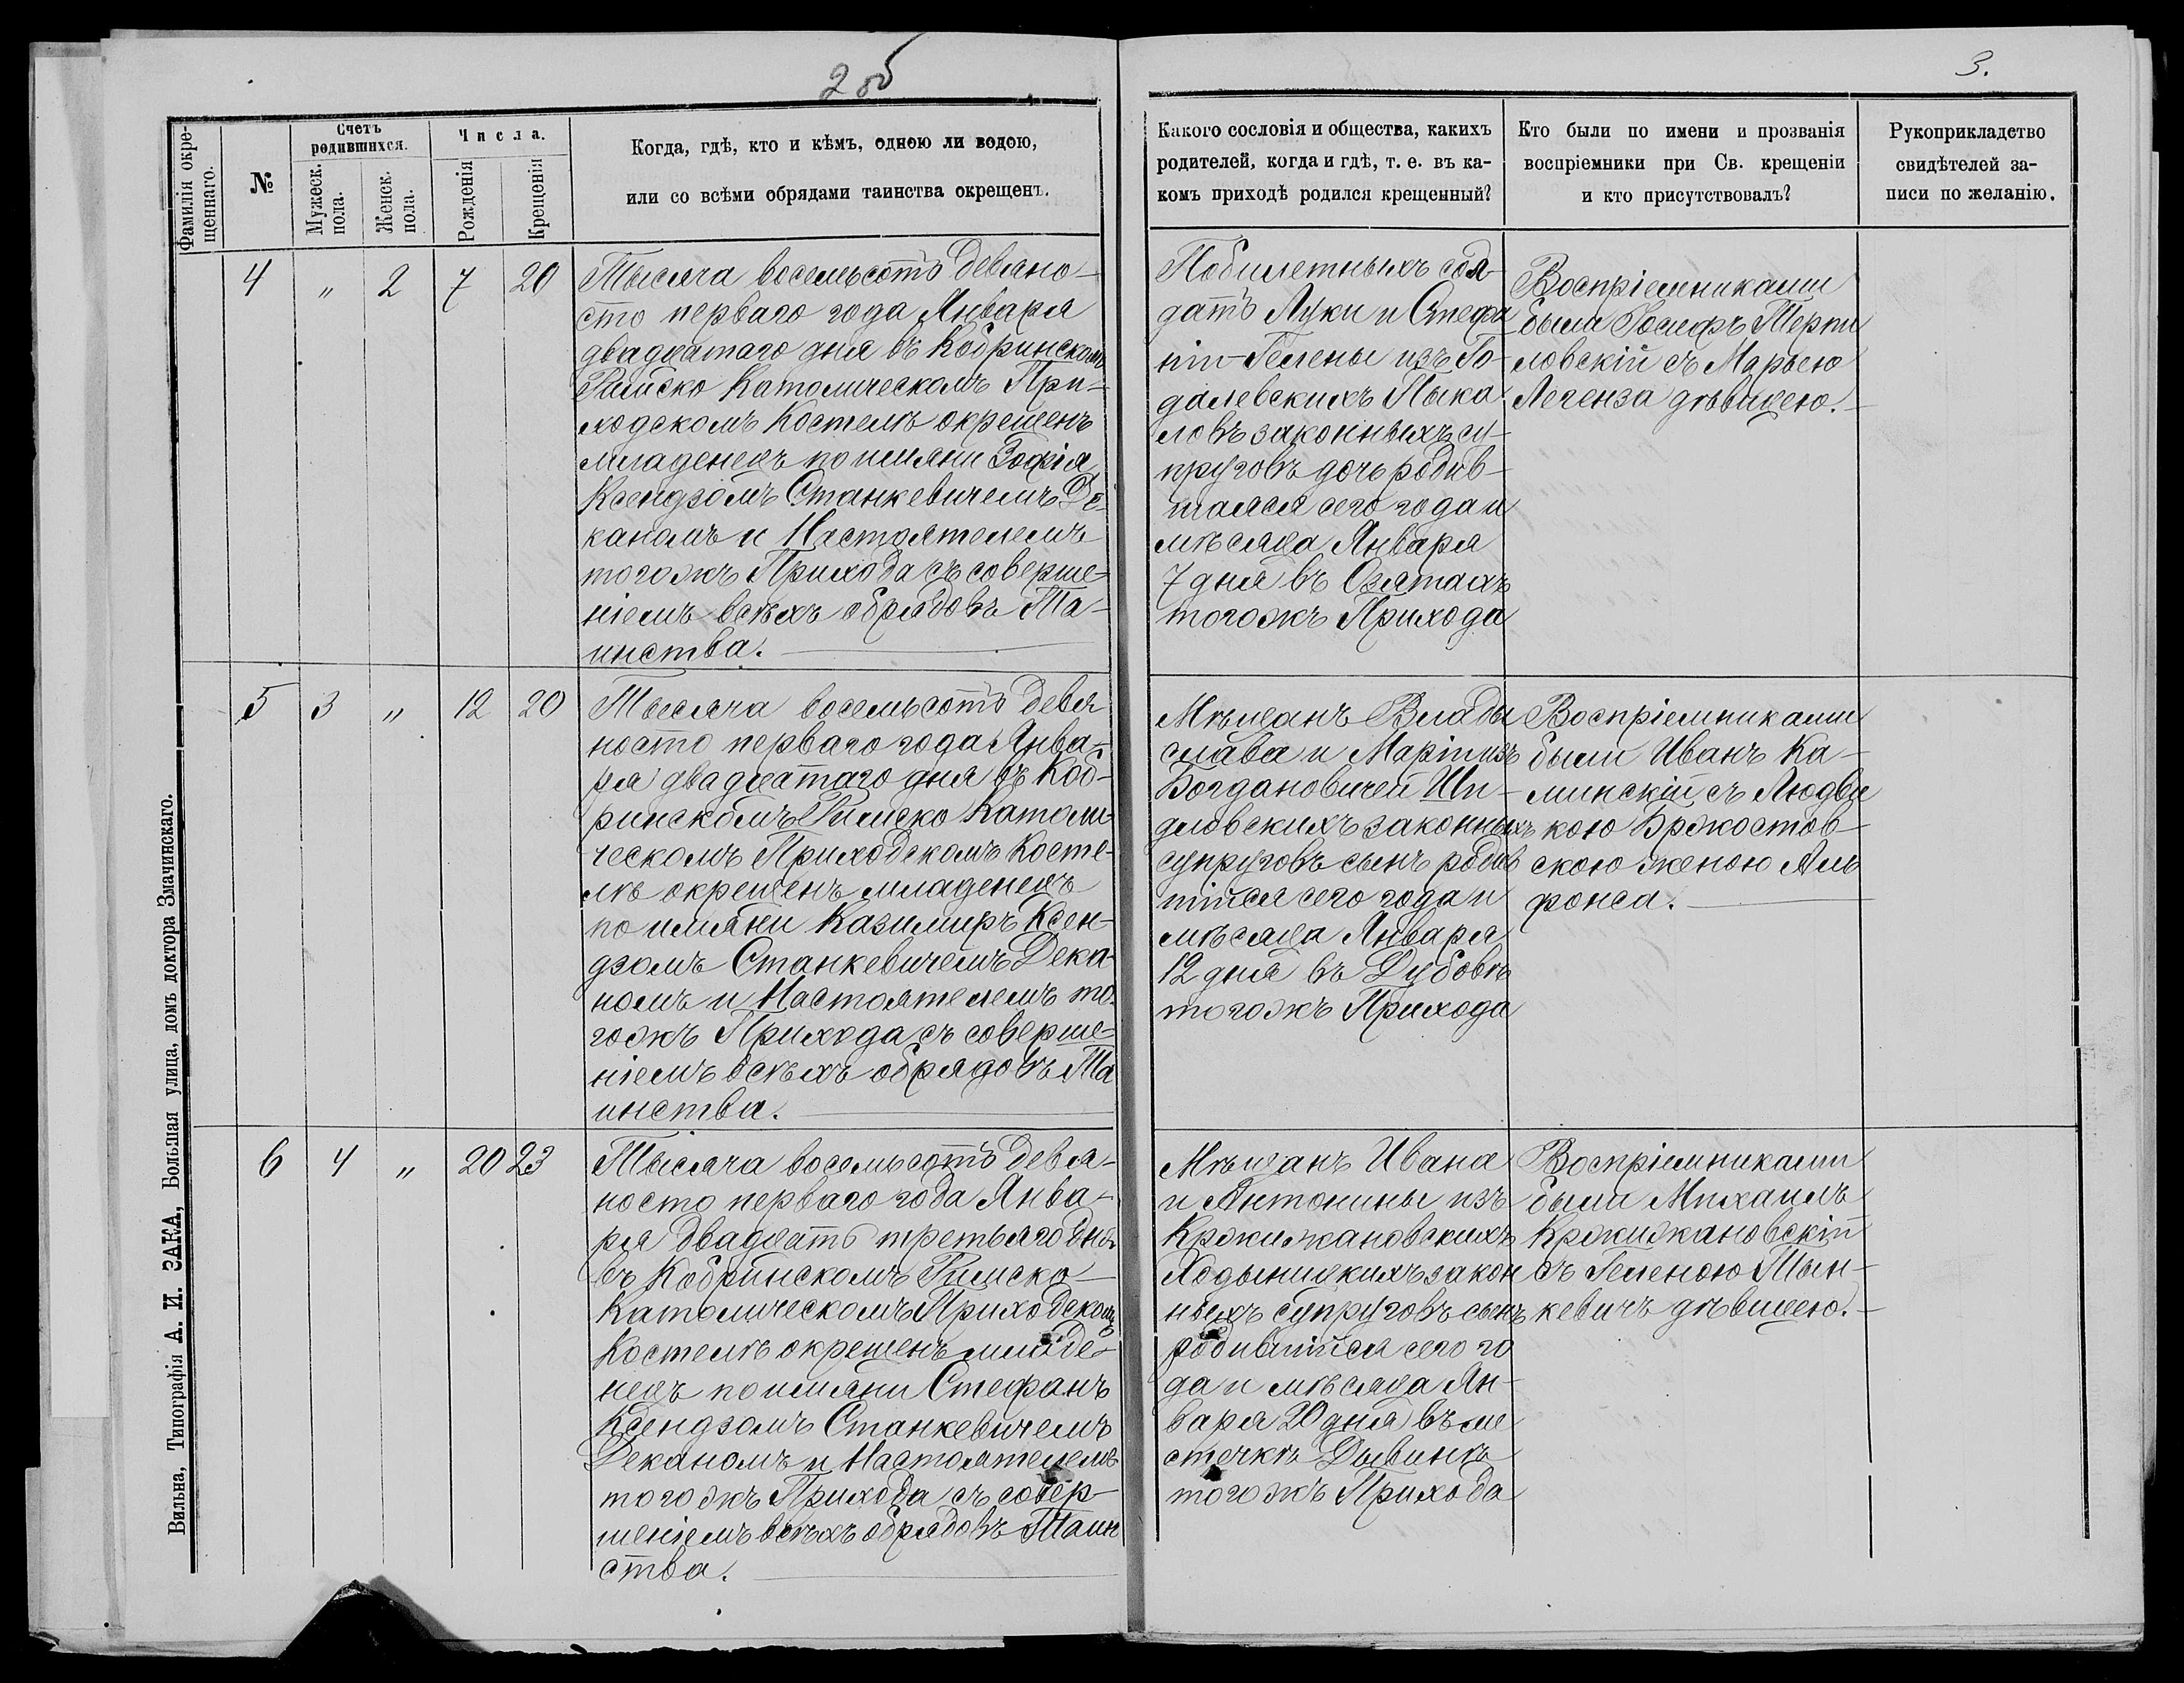 2 об
3.
Фамилія окре-
щеннаго.
№
Счетъ
родившихся.
Мужеск.
пола.
Женск.
пола.
Числа.
Рожденія
Крещенія
Когда, гдѣ, кто и кѣмъ, одною ли водою,
или со всѣми обрядами таинства окрещенъ.
Какого сословія и общества, какихъ
родителей, когда и гдѣ, т. е. въ ка-
комъ приходѣ родился крещенный?
Кто были по имени и прозванія
воспріемники при Св. крещеніи
и кто присутствовалъ?
Рукоприкладетво
свидѣтелей за-
писи по желанію.
4 „ 2 7 20
Тысяча восемьсотъ девяно-
сто перваго года Января
двадцатаго дня въ Кобринскомъ
Римско Католическомъ При-
ходскомъ Костелѣ окрещенъ
младенецъ по имяни Зофія
Ксендзомъ Станкевичемъ Де-
каномъ и Настоятелемъ
тогожъ Прихода съ соверше-
ніемъ всѣхъ обрядовъ Та-
инства.
Побилетныхъ сол-
датъ Луки и Стефа
ніи-Гелены изъ Го-
далевскихъ Пыка
ловъ законныхъ су-
пруговъ дочь родив-
шаяся сего года и
мѣсяца Января
7 дня въ Озятахъ
тогожъ Прихода
Воспріемниками
были Іосифъ Терпи
ловскій съ Марьею
Легенза дѣвицею.
5 3 „ 12 20
Тысяча восемьсотъ девя
носто перваго года Янва-
ря двадцатаго дня въ Коб-
ринскомъ Римско Католи-
ческомъ Приходскомъ Косте-
лѣ окрещенъ младенецъ
по имяни Казимиръ Ксен-
дзомъ Станкевичемъ Дека-
номъ и Настоятелемъ то-
гожъ Прихода съ соверше-
ніемъ всѣхъ обрядовъ Та
инства.
Мѣщанъ Влады
слава и Маріи изъ
Богдановичей Ши-
дловскихъ законныхъ
супруговъ сынъ родив
шійся сего года и
мѣсяца Января
12 дня въ Дубовѣ
тогожъ Прихода
Воспріемниками
были Иванъ Ка-
минскій съ Людви
кою Бржостов-
скою женою Аль
фонса.
6 4 „ 20 23
Тысяча восемьсотъ девя-
носто перваго года Янва-
ря двадцать третьяго дня
въ Кобринскомъ Римско-
Католическомъ Приходскомъ
Костелѣ окрещенъ младе-
нецъ по имяни Стефанъ
Ксендзомъ Станкевичемъ
Деканомъ и Настоятелемъ
тогожъ Прихода съ совер-
шеніемъ всѣхъ обрядовъ Таин
ства.
Мѣщанъ Ивана
и Антонины изъ
Кржижановскихъ
Ходыницкихъ закон
ныхъ супруговъ сынъ
родившійся сего го
да и мѣсяца Ян-
варя 20 дня въ ме
стечкѣ Дывинѣ
тогожъ Прихода
Воспріемниками
были Михаилъ
Кржижановскій
съ Геленою Тын-
кевичъ дѣвицею.
Вильна, Типографія А. И. ЗАКА, Большая улица, домъ доктора Змачинскаго.